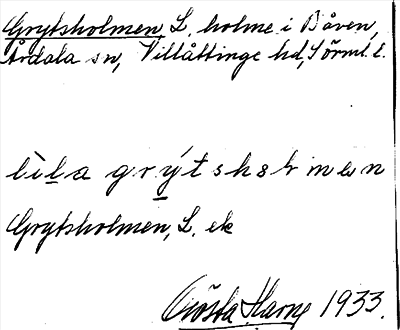 Grytsholmen, L. holme i Båven,
Årdala sn, Villåttinge hd, Sörml. l.
lìla grýtshɷłmən
Grytsholmen, L. ek
Gösta Harne 1933.